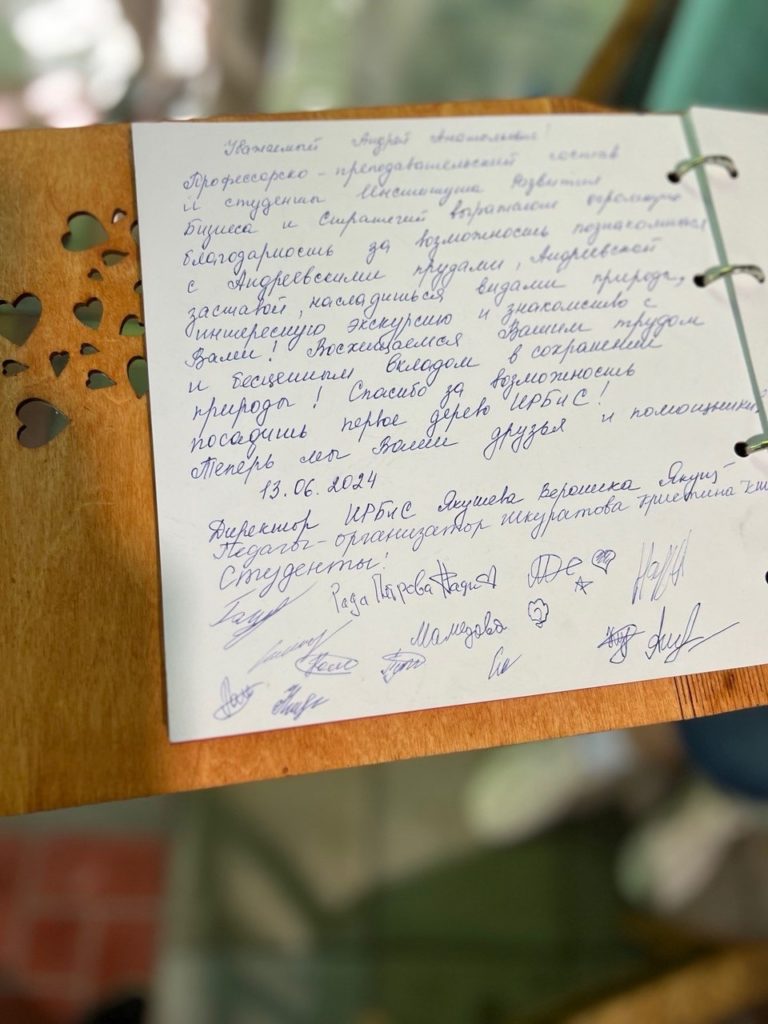 Уважаемый Андрей Анатольевич!
Профессорско-преподавательский состав
и студенты Института Развития
Бизнеса и Стратегий выражаем огромную
благодарность за возможность познакомиться
с Андреевскими прудами, Андреевской
заставой, насладиться видами природы,
интересную экскурсию и знакомство с
Вами! Восхищаемся Вашим трудом
и бесценным вкладом в сохранении
природы! Спасибо за возможность
посадить первое дерево ИРБиС!
Теперь мы Ваши друзья и помощники
13.06.2024
Директор ИРБиС Якушева Вероника Якуш
Педагог-организатор Шкуратова Кристина
Студенты:
Рада Петрова
Мамедова